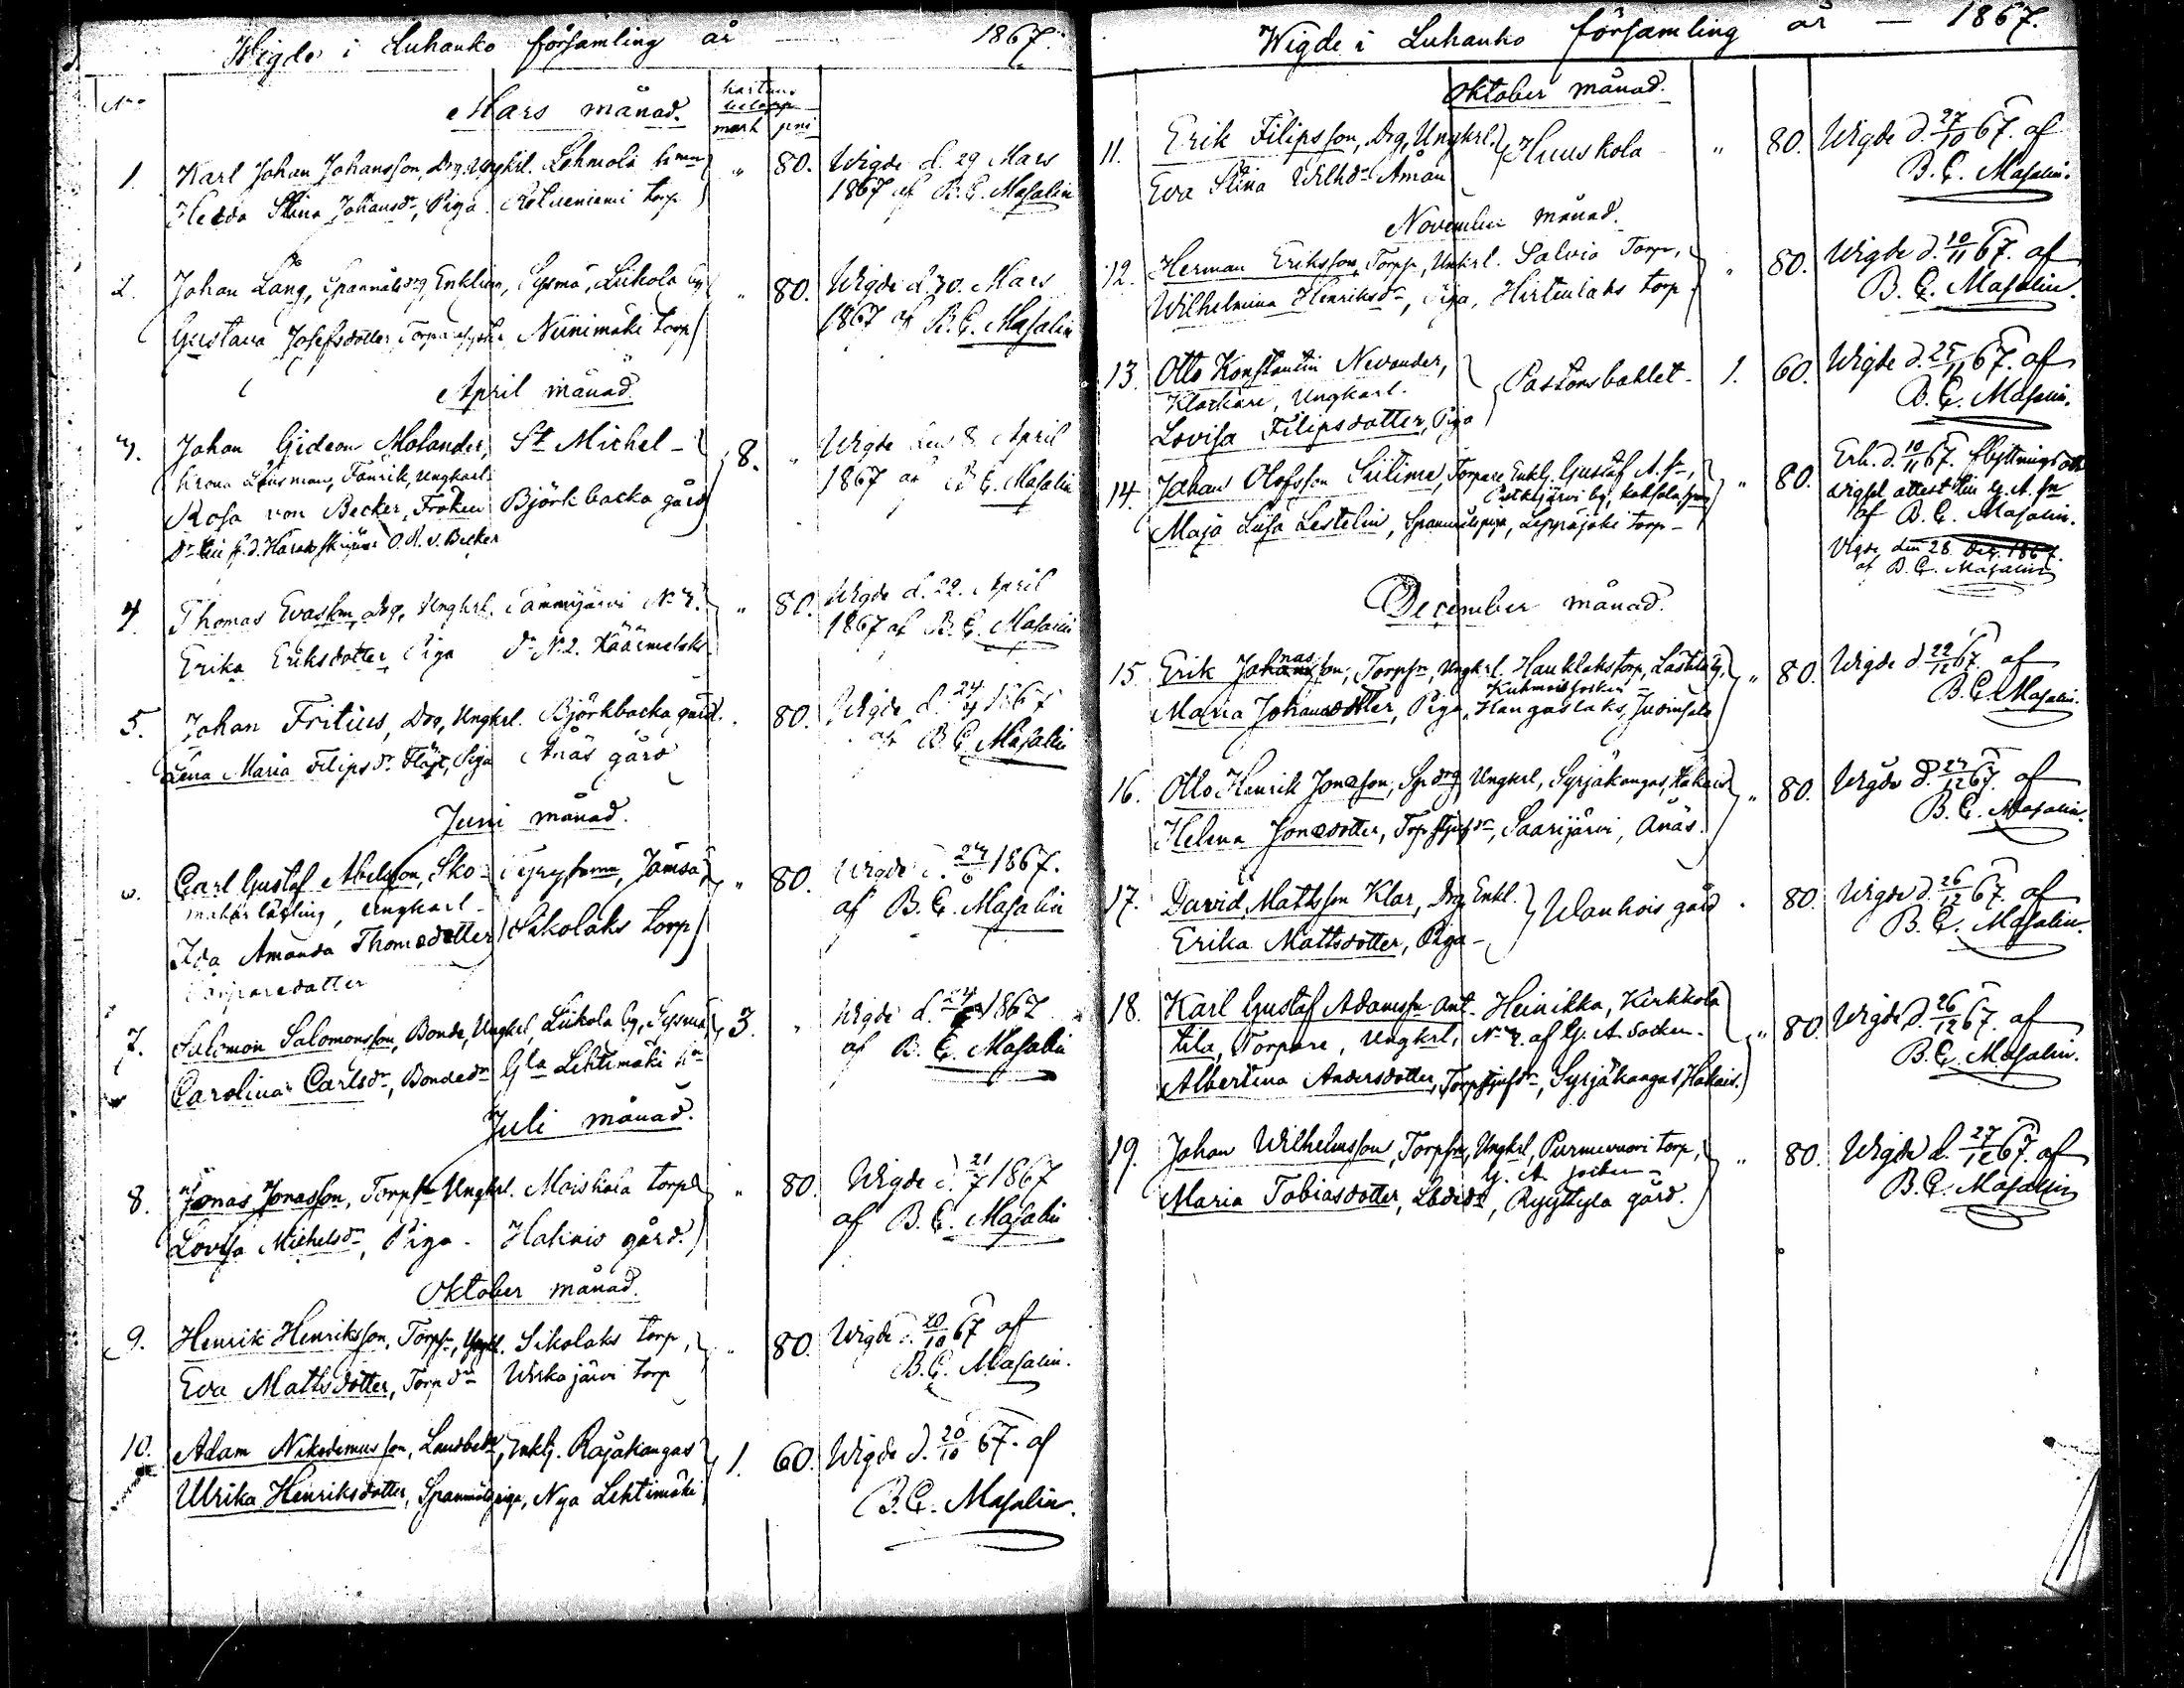 Wigde i Luhanko församling år — 1867.
No
Mars månad.
mark pni
1. Karl Johan Johansson, Drg. Ungkrl. Lehmola hmn " 80. Wigde d. 29 Mars
Hedda Stina Johansdr, Piga torp 1867 af B. E. Masalin
2. Johan Lång, Spannålsdrg, Enkling, Sysmä, Liikola by " 80. Wigde d. 30. Mars
Gustava Josefsdotter Niinimäki torp 1867 af B. E. Masalin
April månad.
3. Johan Gideon Molander, St Michel - 8. " Wigde den 8. April
Krono Länsman, Fänrik, Ungkarl. 1867 af B. E. Masalin
Rosa von Becker, Fröken Björkbacka gård
O. R. v. Becker
4. Thomas Evasson, Drg, Ungkrl. Tammijärvi No 3. " 80. Wigde d. 22. April
Erika Eriksdotter, Piga do No 2. 1867 af B. E. Masalin
5. Johan Fritius, Drg, Ungkrl. Björkbacka gård. " 80. Wigde d. 24/4 1867
Lena Maria Filipsdr Flöjt, Piga Anäs gård af B. E. Masalin
Juni månad.
6. Carl Gustaf Abelsson, Sko- Jämsä, " 80. Wigde d. 24/6 1867.
makar lärling, Ungkarl - af B. E. Masalin
Ida Amanda Thomasdotter Sikolaks torp
Torparedotter
7. Salomon Salomonsson, Bonde, Ungkrl, Liikola by, Sysmä, 3. " Wigde d. 24/6 1867
Carolina Carlsdr, Bondedr Gla Lehtimäki hn af B. E. Masalin
Juli månad.
8. Jonas Jonasson, Torpsn Ungkrl. Moiskala torp " 80. Wigde d. 21/7 1867
Lovisa Michelsdr, Piga - Hakais gård. af B. E. Masalin
Oktober månad.
9. Henrik Henriksson, Torpsn, Ungkl. Sikolaks torp, " 80. Wigde d. 20/10 67 af
Eva Mattsdotter, Torpdr Wirkajärvi torp B. E. Masalin.
10. Adam Nikodemusson, Enklg. Rajakangas 1. 60. Wigde d. 20/10 67. af
Ulrika Henriksdotter, Spannålspiga, Nya Lehtimäki B. E. Masalin.
Wigde i Luhanko församling år — 1867.
Oktober månad.
11. Erik Filipsson, Drg, Ungkrl. Huuskola - " 80. Wigde d. 27/10 67. af
Eva Stina Wilhdr Åman B. E. Masalin.
November månad.
12. Herman Eriksson, Torpsn, Unkrl. Salvia Torp, " 80. Wigde d. 10/11 67. af
Wilhelmina Henriksdr, Piga, Hirtulaks torp B. E. Masalin.
13. Otto Konstantin Nevander, Pastorsbohlet - 1. 60. Wigde d. 25/11 67. af
Klockare, Ungkarl. B. E. Masalin.
Lovisa Filipsdotter, Piga
14. Johan Olofsson Siitime, Torpare Enklg. Gustaf A. sn, " 80. Erh. d. 10/11 67. flyttnings och
vigsel attest till G. A. sn
Maja Liisa Lestelin, Spannålspiga, Leppäjoki torp - af B. E. Masalin.
Vigde den 28. Dec. 1867.
af B. E. Masalin
December månad.
15. Erik Johansson, nas Torpsn, Ungkrl. Hauklaks torp, " 80. Wigde d. 22/12 67. af
Kuhmois socken -
Maria Johansdotter, Piga, Kangaslaks, Judinsalo B. E. Masalin.
16. Otto Henrik Jonasson, Spdrg, Ungkrl, Syrjäkangas, Hakais " 80. Wigde d. 24/12 67. af
Helena Jonasdotter, Saarijärvi, Anäs. B. E. Masalin.
17. David Mattsson Klar, Drg, Enkl. Wanhois gård " 80. Wigde d. 26/12 67. af
Erika Mattsdotter, Piga - B. E. Masalin.
18. Karl Gustaf Adamsson Ant- Heinikka, Kirkkola " 80. Wigde d. 26/12 67. af
tila, Torpare, Ungkrl, No 3. af G. A. Socken. B. E. Masalin.
Albertina Andersdotter, Syrjäkangas, Hakais.
19. Johan Wilhelmsson, Torpsn, Ungkrl, Purnuvuori torp, " 80. Wigde d. 27/12 67. af
G. A. socken -
Maria Tobiasdotter, Ryyttylä gård. B. E. Masalin